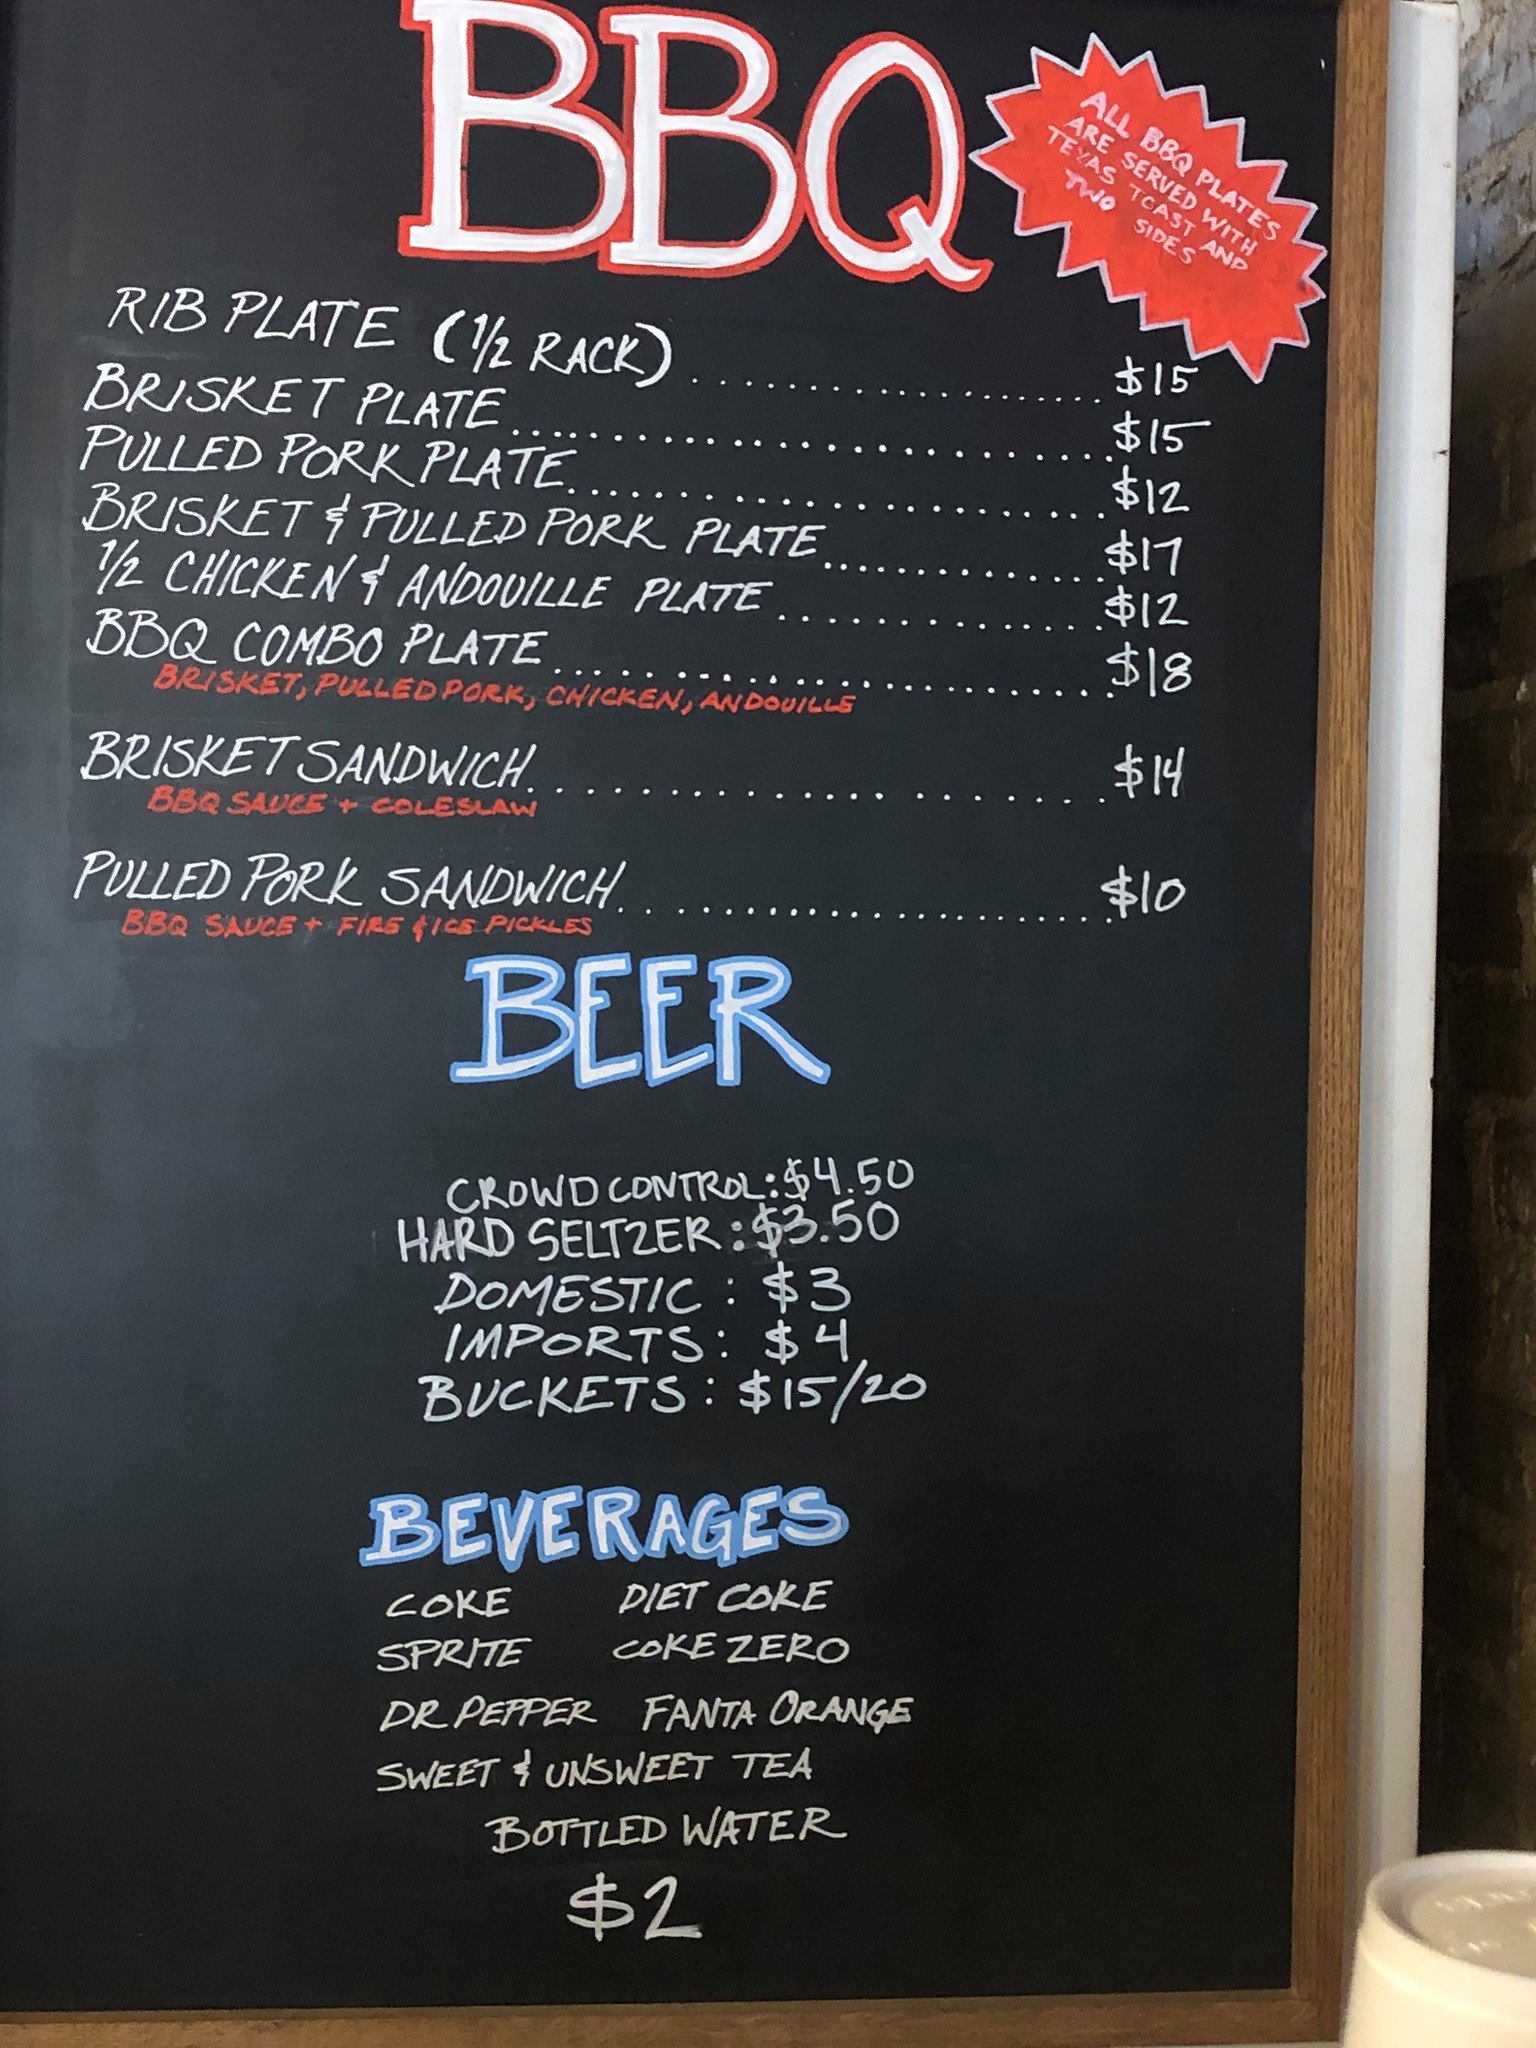 BBQ
ALL BBQ PLATES
ARE SERVED WITH
TEXAS TOAST AND
TWO SIDES
RIB PLATE (1/2 RACK)..................$15
BRISKET PLATE..............................$15
PULLED PORK PLATE........................$12
BRISKET & PULLED PORK PLATE..............$17
1/2 CHICKEN & ANDOUILLE PLATE................$12
BBQ COMBO PLATE............................$18
BRISKET, PULLED PORK, CHICKEN, ANDOUILLE
BRISKET SANDWICH........................$14
BBQ SAUCE + COLESLAW
PULLED PORK SANDWICH........................$10
BBQ SAUCE + FIRE & ICE PICKLES
BEER
CROWD CONTROL: $4.50
HARD SELTZER: $3.50
DOMESTIC: $3
IMPORTS: $4
BUCKETS: $15/20
BEVERAGES
COKE DIET COKE
SPRITE COKE ZERO
DR PEPPER FANTA ORANGE
SWEET & UNSWEET TEA
BOTTLED WATER
$2